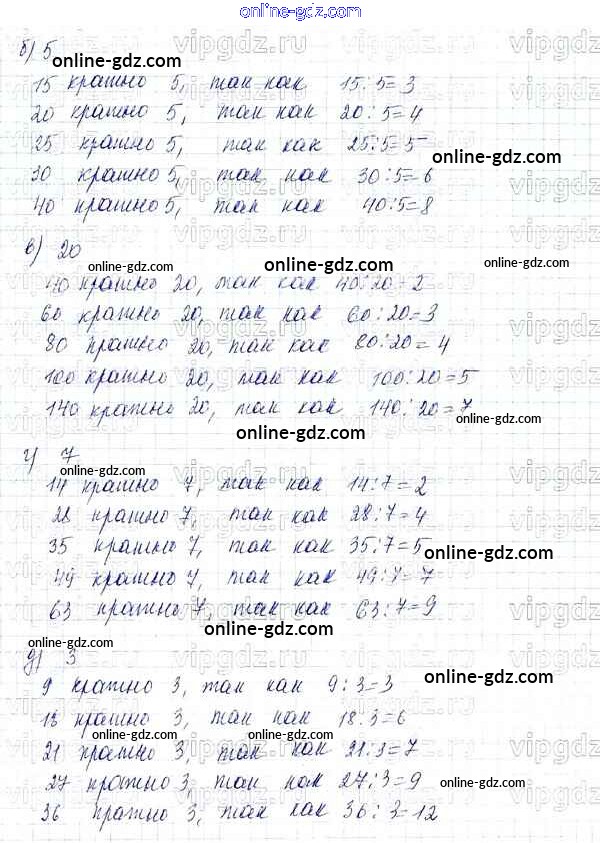 online-gdz.com
б) 5
15 кратно 5, так как 15:5=3
20 кратно 5, так как 20:5=4
25 кратно 5, так как 25:5=5
online-gdz.com
30 кратно 5, так как 30:5=6
40 кратно 5, так как 40:5=8
в) 20
online-gdz.com online-gdz.com
40 кратно 20, так как 40:20=2
60 кратно 20, так как 60:20=3
80 кратно 20, так как 80:20=4
100 кратно 20, так как 100:20=5
140 кратно 20, так как 140:20=7
online-gdz.com online-gdz.com
г) 7
online-gdz.com
14 кратно 7, так как 14:7=2
28 кратно 7, так как 28:7=4
35 кратно 7, так как 35:7=5
online-gdz.com
49 кратно 7, так как 49:7=7
63 кратно 7, так как 63:7=9
online-gdz.com
online-gdz.com
д) 3
online-gdz.com
9 кратно 3, так как 9:3=3
18 кратно 3, так как 18:3=6
online-gdz.com online-gdz.com
21 кратно 3, так как 21:3=7
27 кратно 3, так как 27:3=9
online-gdz.com
36 кратно 3, так как 36:3=12